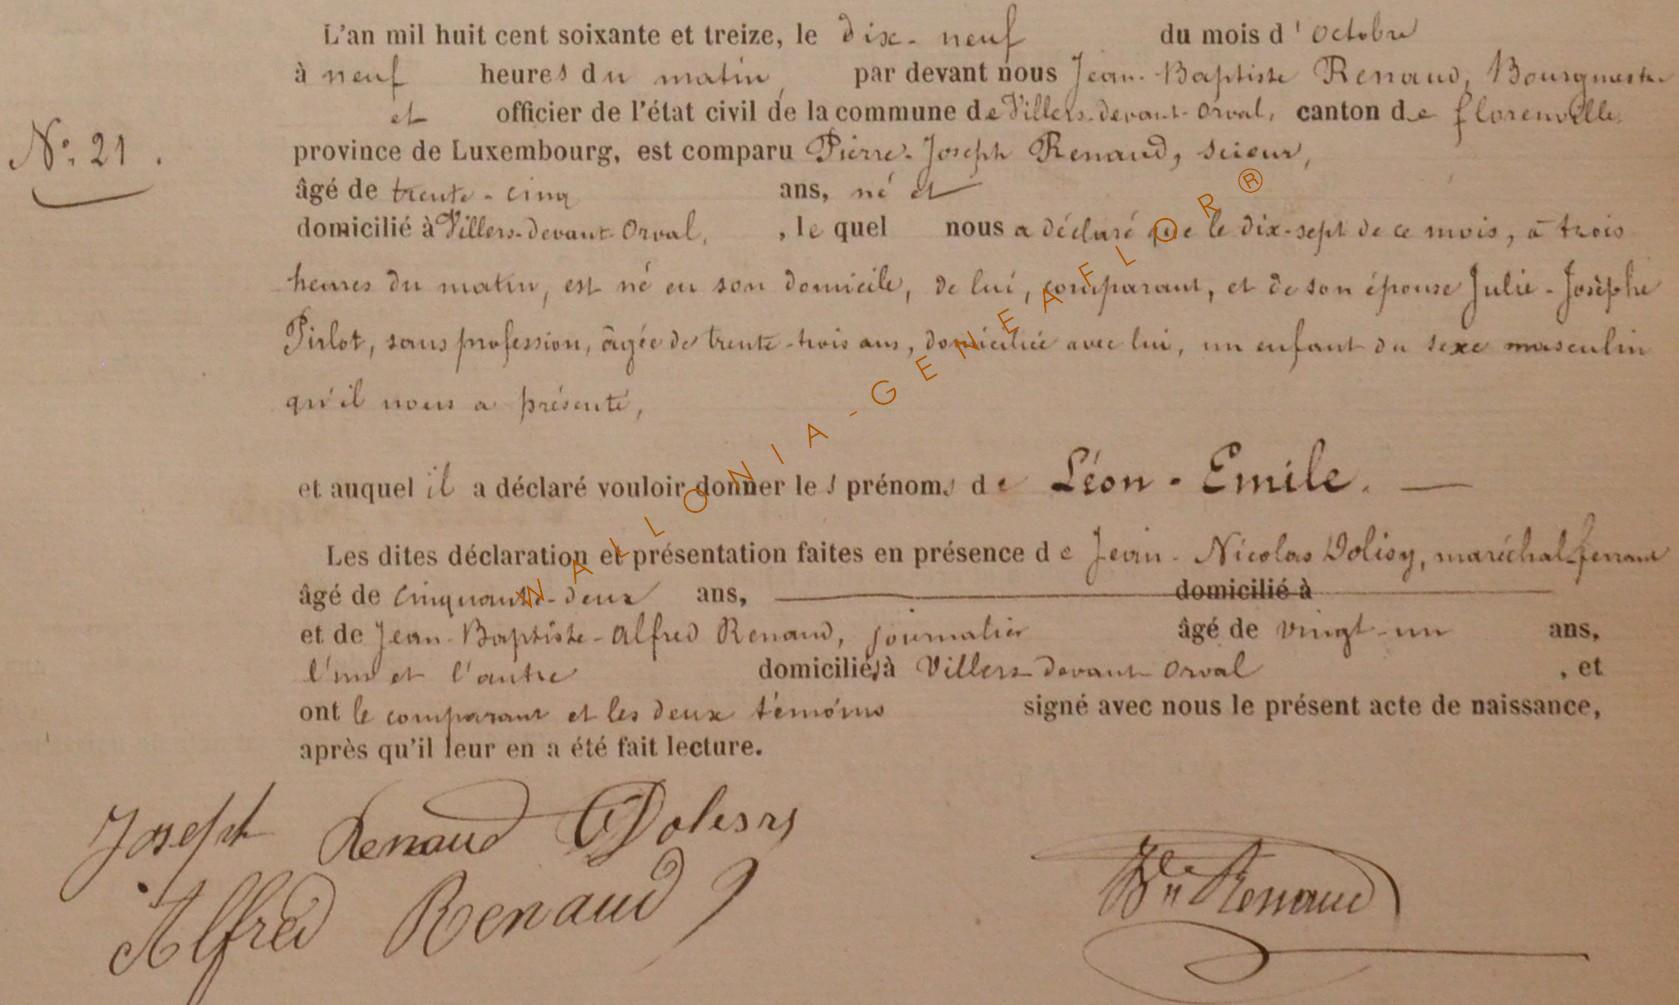 L'an mil huit cent soixante et treize, le dix-neuf du mois d'octobre
à neuf heures du matin, par devant nous Jean-Baptiste Renaud, Bourgmestre
et officier de l'état civil de la commune de Villers-devant-Orval, canton de florenville
N°. 21.
province de Luxembourg, est comparu Pierre-Joseph Renaud, scieur,
âgé de trente-cinq ans, né et
domicilié à Villers-devant-Orval, , le quel nous a déclaré que le dix-sept de ce mois, à trois
heures du matin, est né en son domicile, de lui, comparant, et de son épouse Julie-Josèphe
Pirlot, sans profession, âgée de trente-trois ans, domiciliée avec lui, un enfant du sexe masculin
qu'il nous a présenté,
et auquel il a déclaré vouloir donner les prénoms de Léon-Emile.
Les dites déclaration et présentation faites en présence de Jean-Nicolas Dolisy, maréchal-ferrant
âgé de cinquante-deux ans, domicilié à
et de Jean-Baptiste-Alfred Renaud, journalier âgé de vingt-un ans,
l'un et l'autre domiciliés à Villers-devant-Orval , et
ont le comparant et les deux témoins signé avec nous le présent acte de naissance,
après qu'il leur en a été fait lecture.
Joseph Renaud Dolisy
Alfred Renaud
Renaud
WALLONIA-GENEAFLOR®